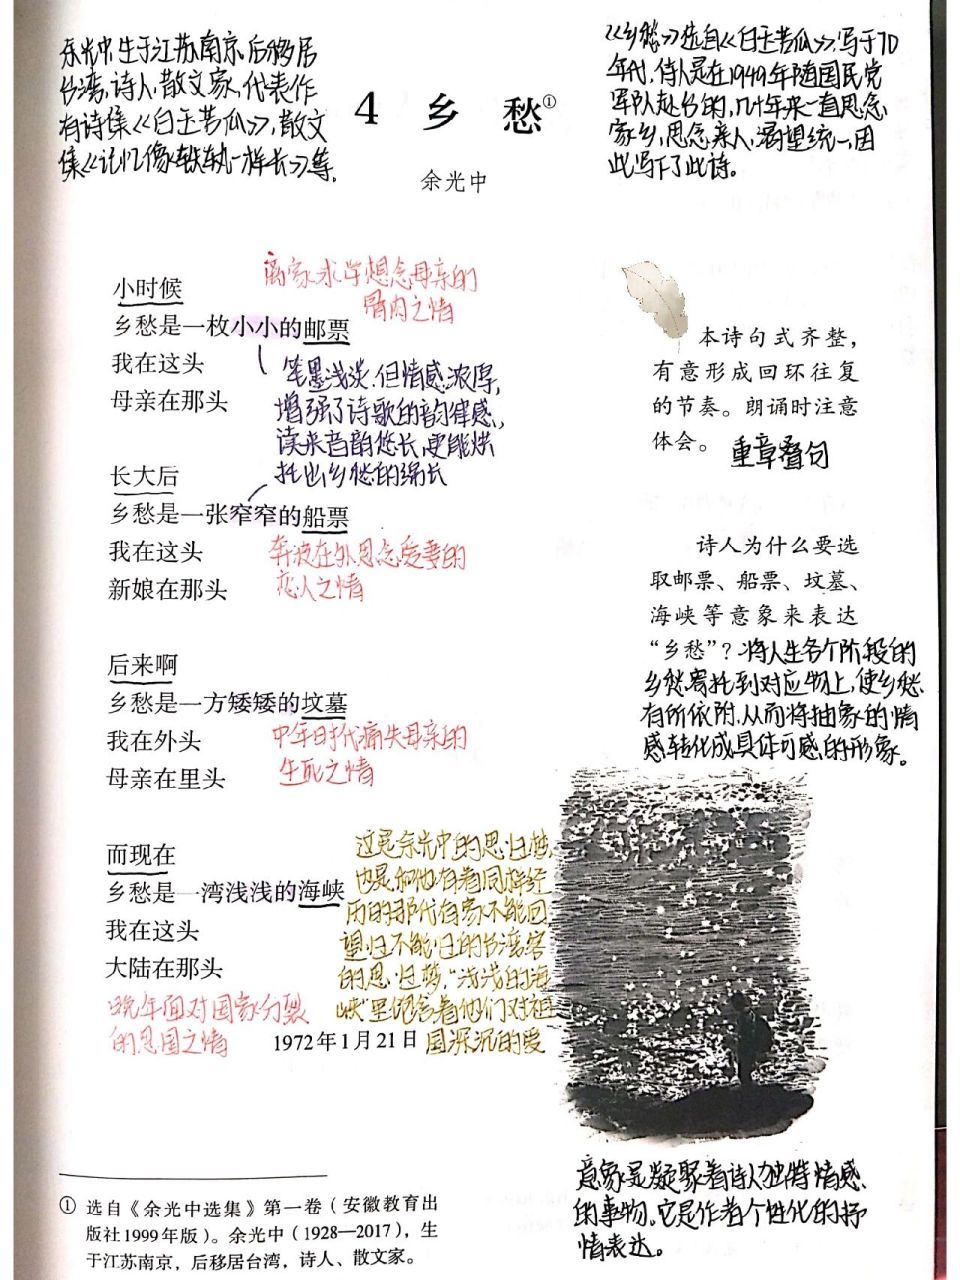 余光中,生于江苏南京,后移居
台湾,诗人,散文家,代表作
有诗集《白玉苦瓜》,散文
集《记忆像铁轨一样长》等.
《乡愁》选自《白玉苦瓜》,写于70
年代,诗人是在1949年随国民党
军队赴台的,几十年来一直思念
家乡,思念亲人,渴望统一,因
此写下了此诗。
4 乡愁①
余光中
离家求学想念母亲的
骨肉之情
小时候
乡愁是一枚小小的邮票
我在这头
母亲在那头
笔墨浅淡,但情感浓厚,
增强了诗歌的韵律感,
读来音韵悠长,更能烘
托出乡愁的绵长
长大后
乡愁是一张窄窄的船票
我在这头
新娘在那头
奔波在外思念爱妻的
恋人之情
后来啊
乡愁是一方矮矮的坟墓
我在外头
母亲在里头
中年时代痛失母亲的
生死之情
而现在
乡愁是一湾浅浅的海峡
我在这头
大陆在那头
晚年面对国家分裂
的思国之情
这是余光中的思归梦,
也是和他有着同样经
历的那代有家不能回
望归不能归的台湾客
的思归梦,“浅浅的海
峡”里饱含着他们对祖
国深沉的爱
1972年1月21日
本诗句式齐整,
有意形成回环往复
的节奏。朗诵时注意
体会。
重章叠句
诗人为什么要选
取邮票、船票、坟墓、
海峡等意象来表达
“乡愁”?将人生各个阶段的
乡愁寄托到对应物上,使乡愁
有所依附,从而将抽象的情
感转化成具体可感的形象。
意象是凝聚着诗人独特情感
的事物。它是作者个性化的抒
情表达。
① 选自《余光中选集》第一卷(安徽教育出
版社1999年版)。余光中(1928—2017),生
于江苏南京,后移居台湾,诗人、散文家。